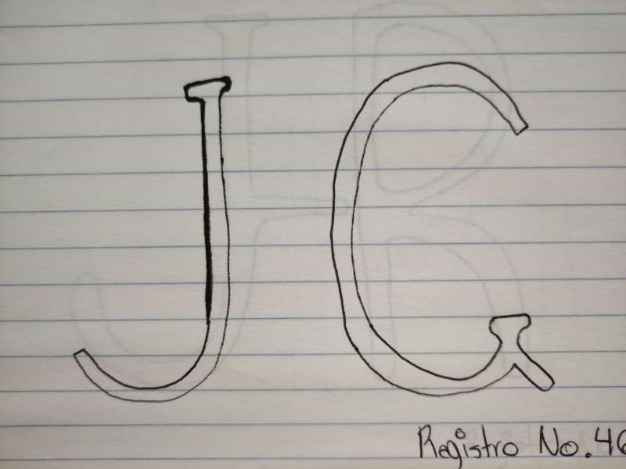 JG
Registro No. 46